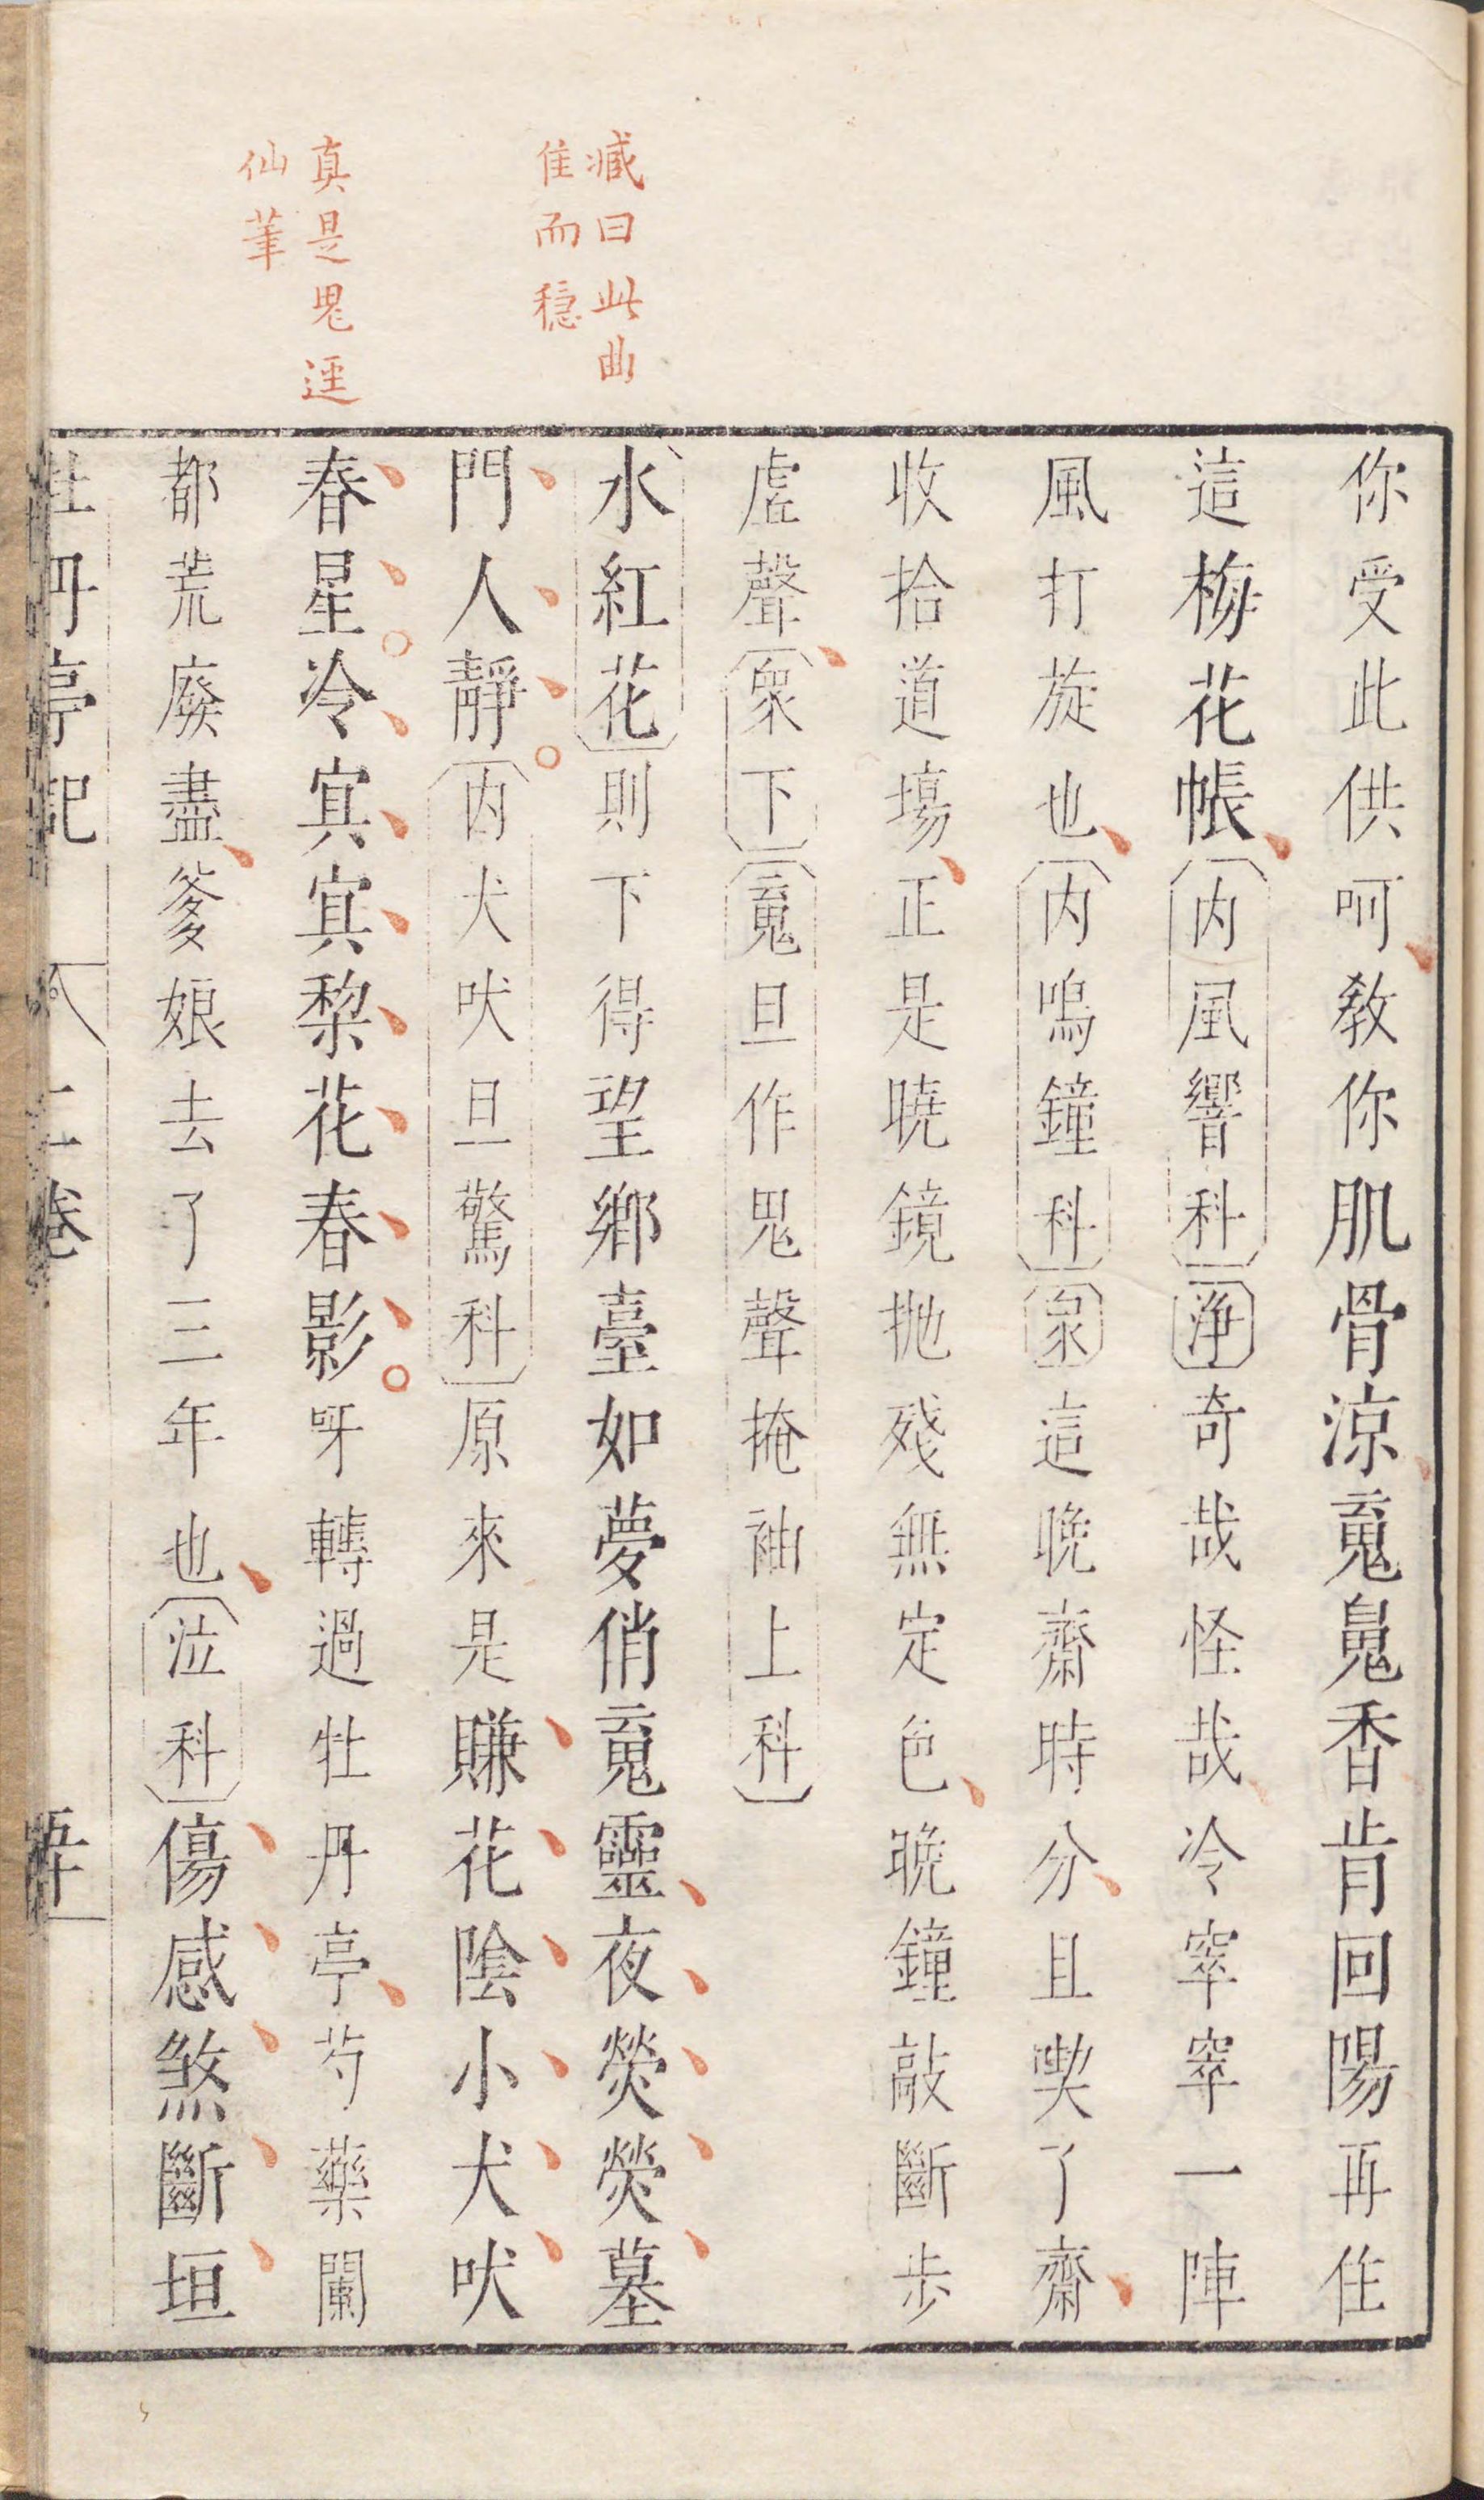 臧曰此曲
佳而穩
真是鬼逕
仙筆
你受此供呵教你肌骨涼䰟䰟香肯回陽再住
這梅花帳〔内風響科〕〔淨〕奇哉怪哉冷窣窣一陣
風打旋也〔内鳴鐘科〕〔眾〕這晩齋時分且喫了齋
收拾道場正是曉鏡抛殘無定色晚鐘敲斷步
虛聲〔眾下〕〔䰟旦作鬼聲掩袖上科〕
〔水紅花〕則下得望鄉臺如夢俏䰟靈夜熒熒墓
門人靜〔内犬吠旦驚科〕原來是賺花陰小犬吠
春星冷冥冥棃花春影呀轉過牡丹亭芍藥闌
都荒廢盡爹娘去了三年也〔泣科〕傷感煞斷垣
牡丹亭記 卷